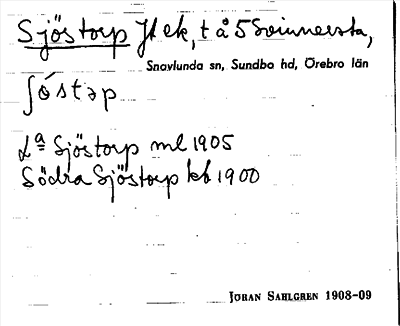 Sjöstorp Jl ek, t å 5 Svinnersta,
Snavlunda sn, Sundbo hd, Örebro län
ʃóstəp
Lª Sjöstorp ml 1905
Södra Sjöstorp kb 1900
JÖRAN SAHLGREN 1908-09